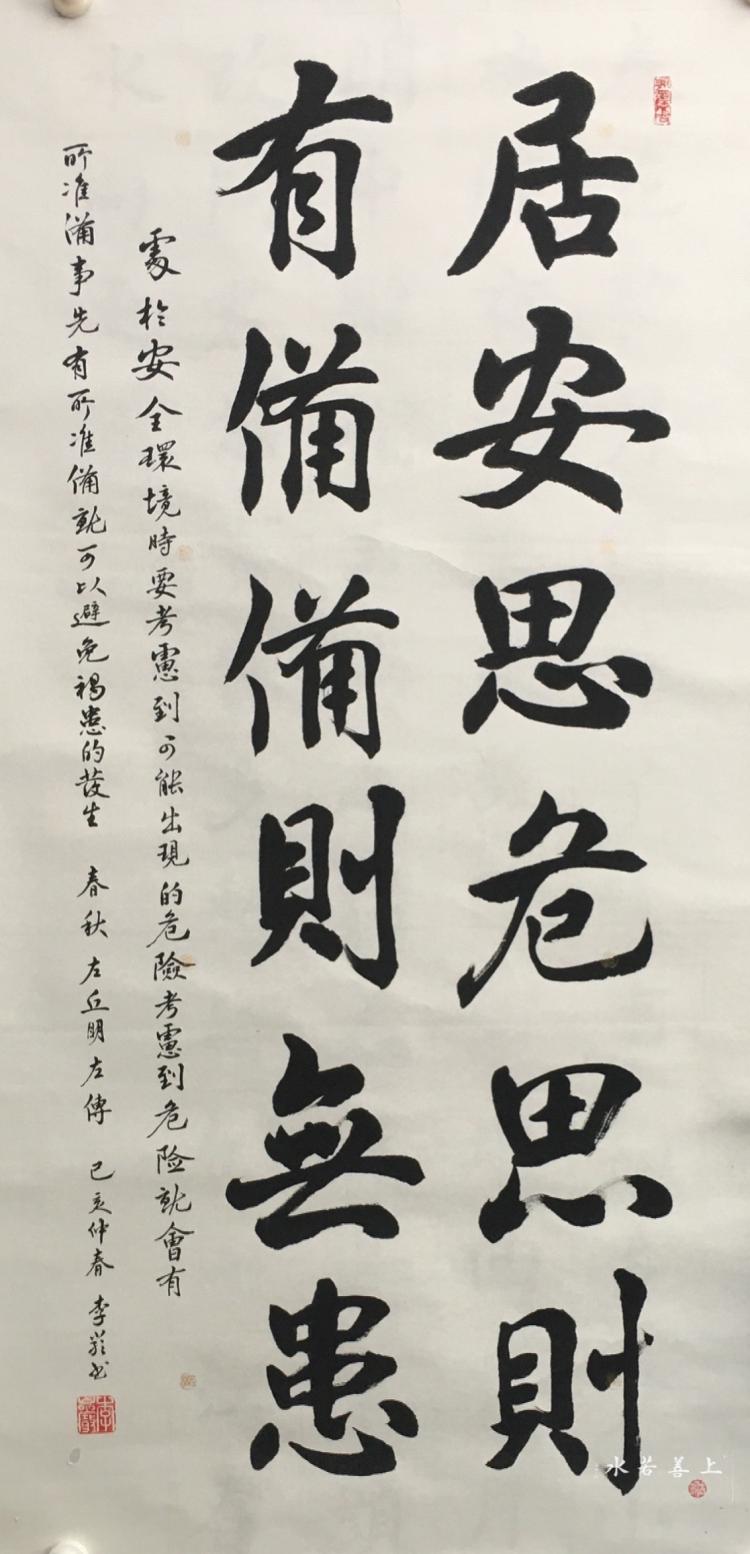 居安思危思則
有備備則無患
處於安全環境時要考慮到可能出現的危險考慮到危险就會有
所准備事先有所准備就可以避免禍患的發生 春秋 左丘明左傳 己亥仲春 李嚴书
上善若水